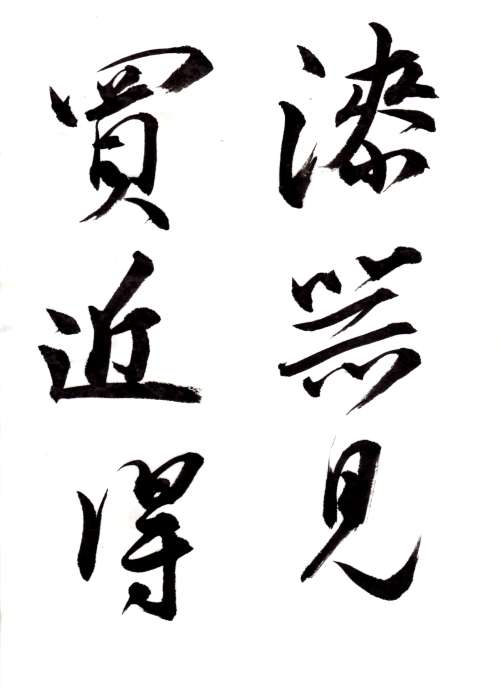 漆器見
買近得